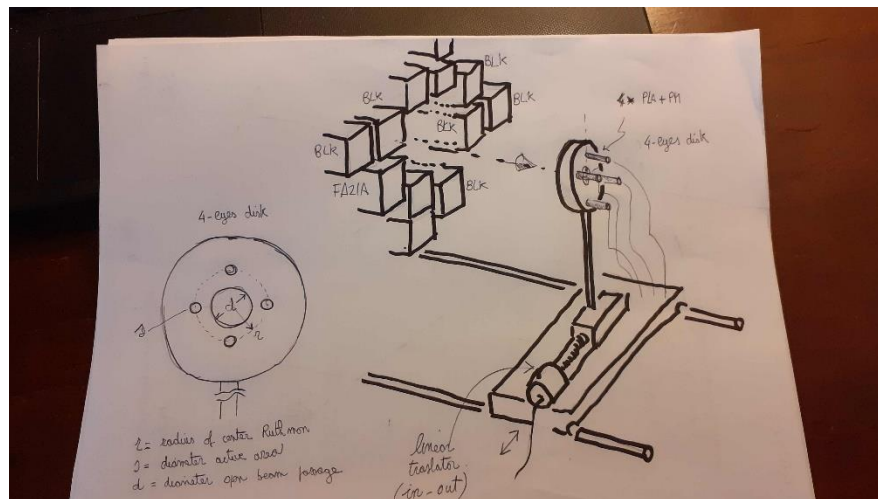 BLK
BLK
BLK
BLK
BLK
BLK
FAZIA
4x PLA + PM
4-eyes disk
4-eyes disk
d
r
s
r = radius of center Ruth mon
s = diameter active area
d = diameter open beam passage
linear
traslator
(in-out)